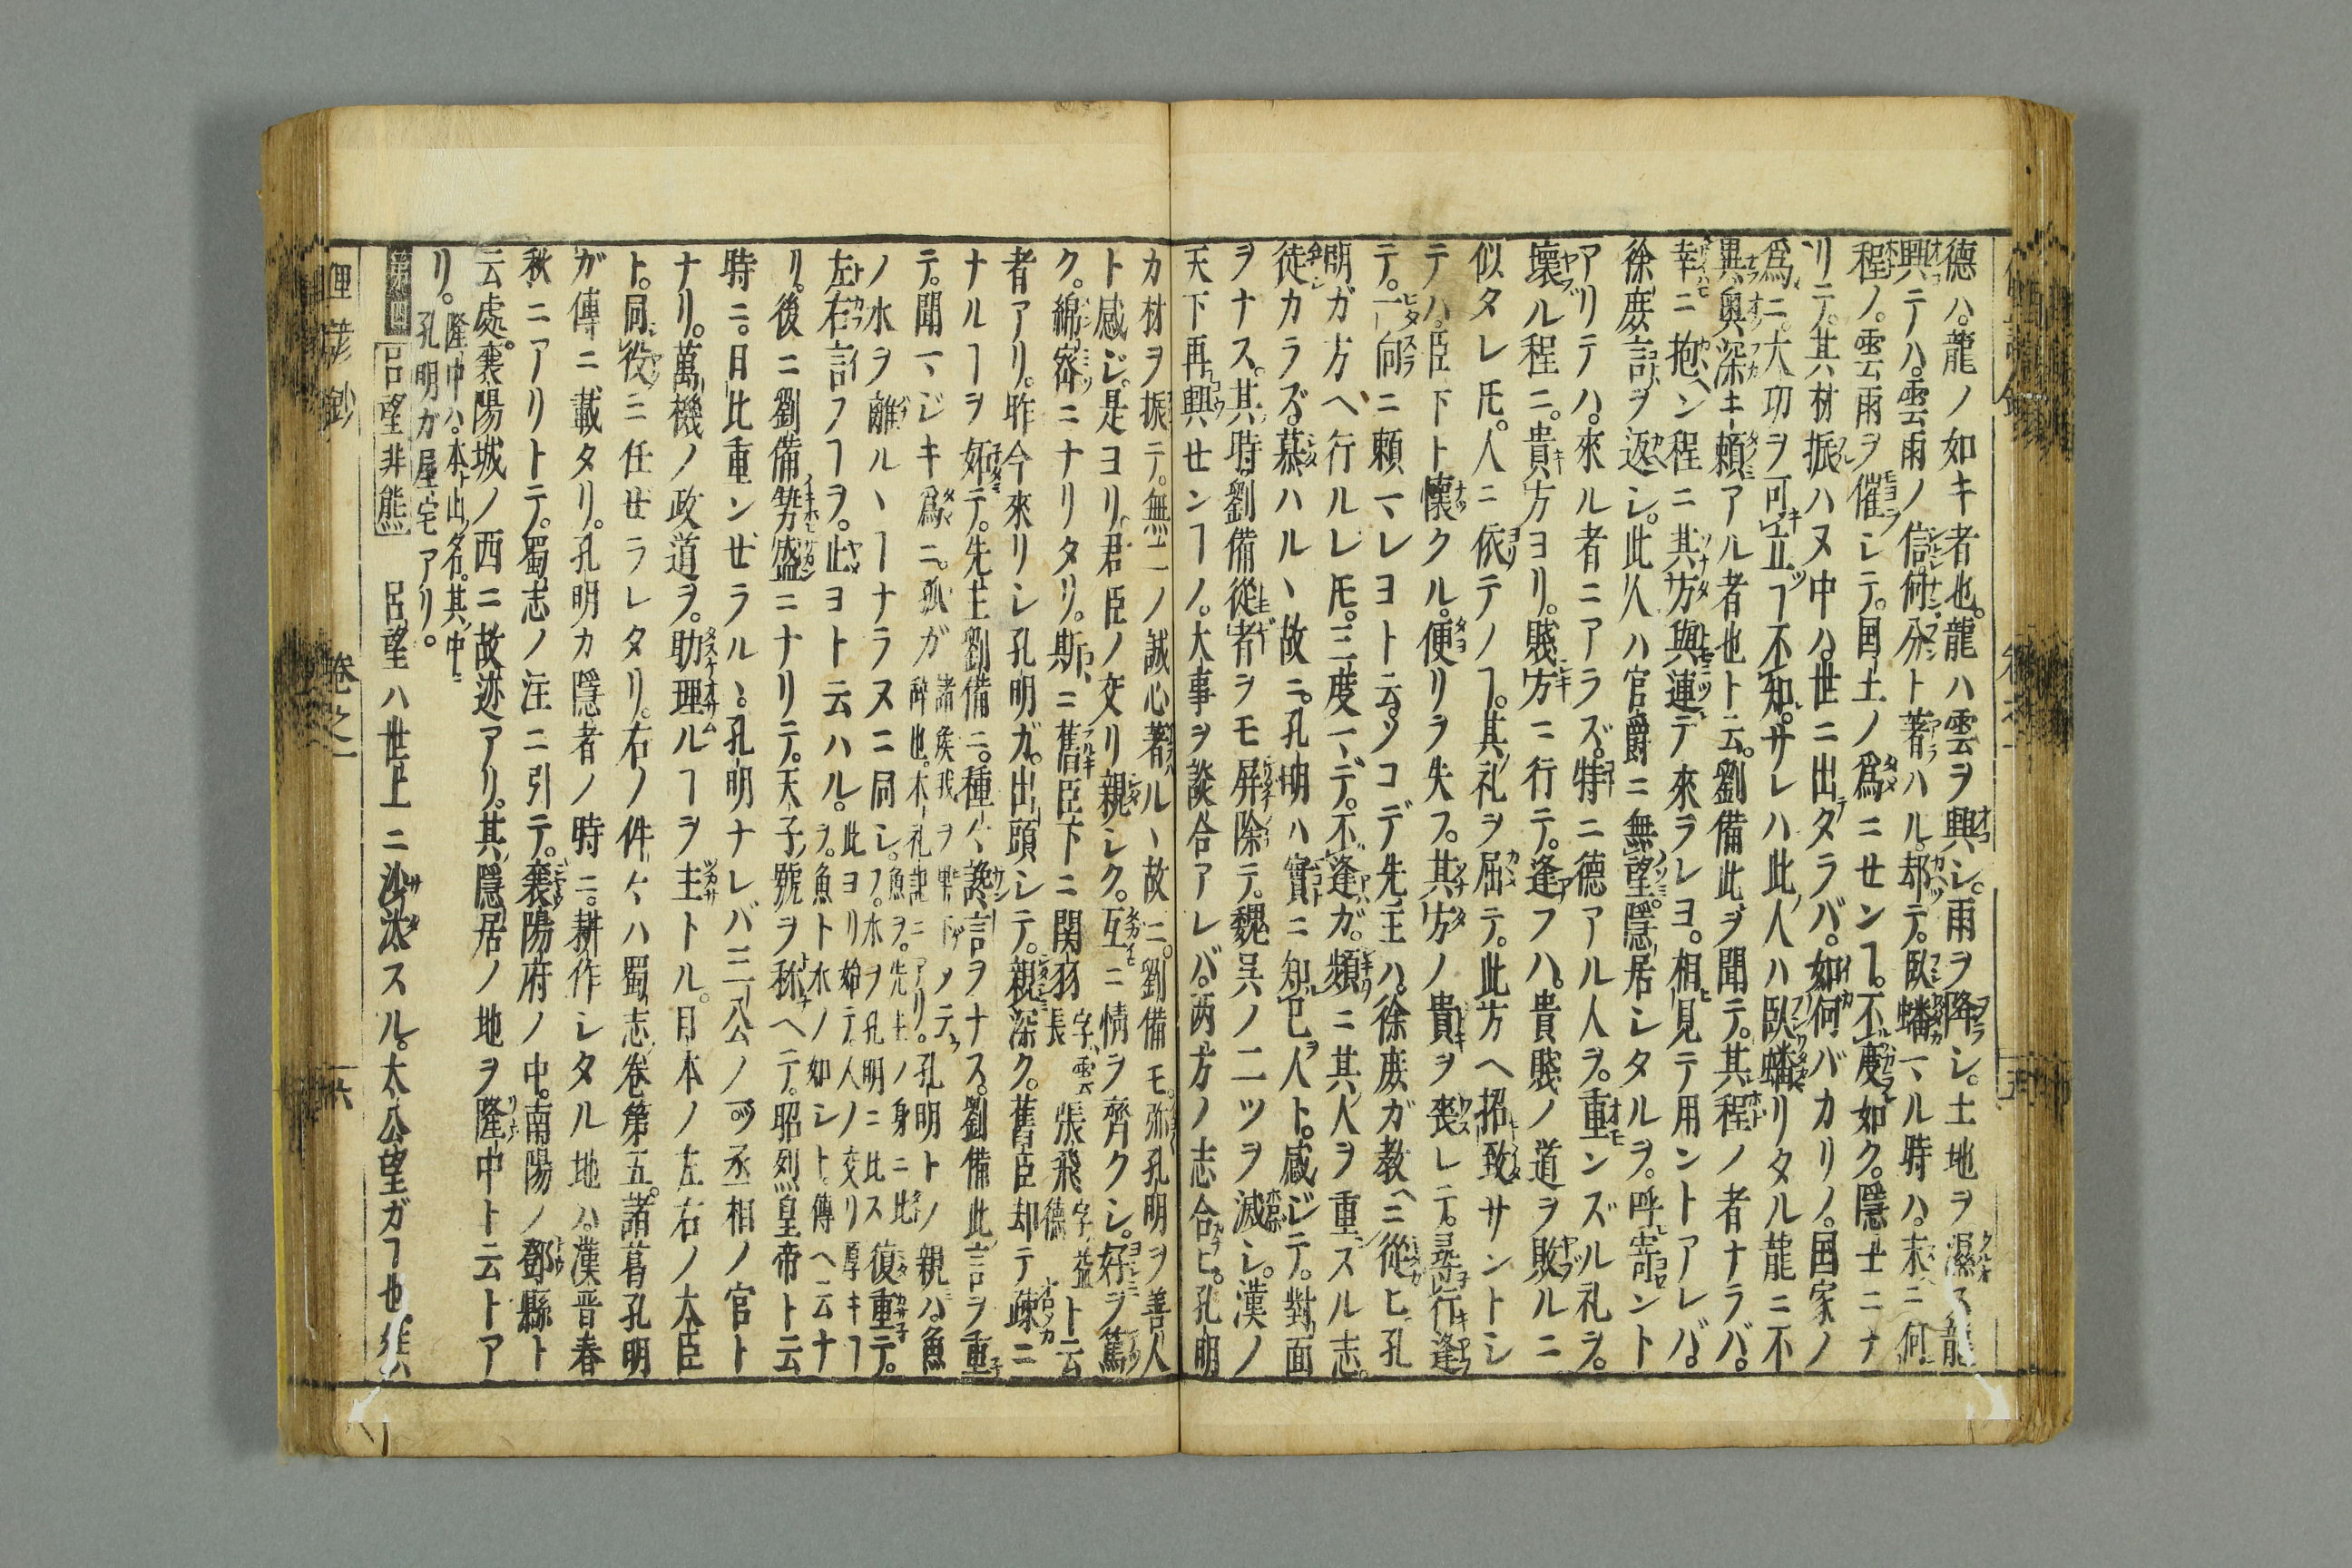 德ハ龍ノ如キ者也。龍ハ雲ヲ興シ。雨ヲ降シ。土地ヲ濕ス龍
興テハ。雲雨ノ信。何分ト著ハル。却テ。臥蟠マル時ハ。未ニ何
程ノ。雲雨ヲ催シテ。国土ノ爲ニセンヿ。不度如ク。隱士ニナ
リテ。其材振ハヌ中ハ。世ニ出タラバ。如何バカリノ。国家ノ
爲ニ。大功ヲ可立ヿ不知。サレハ此人ハ臥蟠リタル龍ニ不
異。奥深キ頼アル者也ト云。劉備此ヲ聞テ。其程ノ者ナラバ。
幸ニ抱ヘン程ニ其方與連デ來ラレヨ。相見テ用ントアレバ。
徐庶言ヲ返シ。此人ハ官爵ニ無望。隱居シタルヲ。呼寄ント
アリテハ。來ル者ニアラズ。特ニ德アル人ヲ。重ンズル礼ヲ。
壞ル程ニ。貴方ヨリ。賤方ニ行テ。逢フハ。貴賤ノ道ヲ敗ルニ
似タレ𪜈。人ニ依テノヿ。其礼ヲ屈テ。此方ヘ招致サントシ
テハ。臣下ト懷クル。便リヲ失フ。其方ノ貴ヲ喪レテ。尋行逢
テ。一向ニ頼マレヨト云。ソコデ先主ハ。徐庶ガ教ヘニ從ヒ孔
明ガ方ヘ行ルレ𪜈。三度マデ。不逢ガ。頻ニ其人ヲ重スル志。
徒カラズ。慕ハルヽ故ニ。孔明ハ實ニ知已人ト。感ジテ。對面
ヲナス。其時劉備從者ヲモ屏除テ。魏呉ノ二ツヲ滅シ。漢ノ
天下再興センヿノ。大事ヲ談合アレバ。两方ノ志合ヒ。孔明
カ材ヲ振テ。無二ノ誠心著ルヽ故ニ。劉備モ。弥孔明ヲ善人
ト感ジ。是ヨリ。君臣ノ交リ親シク。互ニ情ヲ齊クシ。好ヲ篤
ク。綿密ニナリタリ。斯ニ舊臣下ニ関羽字雲長張飛字益德ト云
者アリ。昨今來リシ孔明ガ。出頭シテ。親深ク。舊臣却テ疎ニ
ナルヿヲ妬テ。先主劉備ニ。種々讒言ヲナス。劉備此言ヲ重
テ。聞マジキ爲ニ。孤ガ諸矦我ヲ畢下メテノ辞也。木礼記ニアリ。孔明トノ親ハ。魚
ノ水ヲ離ルヽヿナラヌニ同シ。魚ヲ。先主ノ身ニ比フ。水ヲ孔明ニ比ス復重テ。
左右言フヿヲ。止ヨト云ハル。此ヨリ始テ。人ノ交リ厚キヿヲ。魚ト水ノ如シト。傳ヘ云ナ
リ。後ニ劉備勢盛ニナリテ。天子號ヲ称ヘテ。昭烈皇帝ト云
時ニ。日比重ンゼラルヽ孔明ナレバ三公ノ丞相ノ官ト
ナリ。萬機ノ政道ヲ。助理ルヿヲ主トル。日本ノ左右ノ大臣
ト。同役ニ任セラレタリ。右ノ件々ハ蜀志巻第五。諸葛孔明
ガ傳ニ載タリ。孔明カ隱者ノ時ニ。耕作シタル地ハ。漢晋春
秋ニアリトテ。蜀志ノ注ニ引テ。襄陽府ノ中。南陽ノ鄧縣ト
云處。襄陽城ノ西ニ故迹アリ。其隱居ノ地ヲ隆中ト云トア
リ。隆中ハ。本山ノ名。其中ニ孔明ガ屋宅アリ。
呂望非熊　呂望ハ世上ニ沙汰スル。太公望ガヿ也
俚諺鈔　巻之一　六